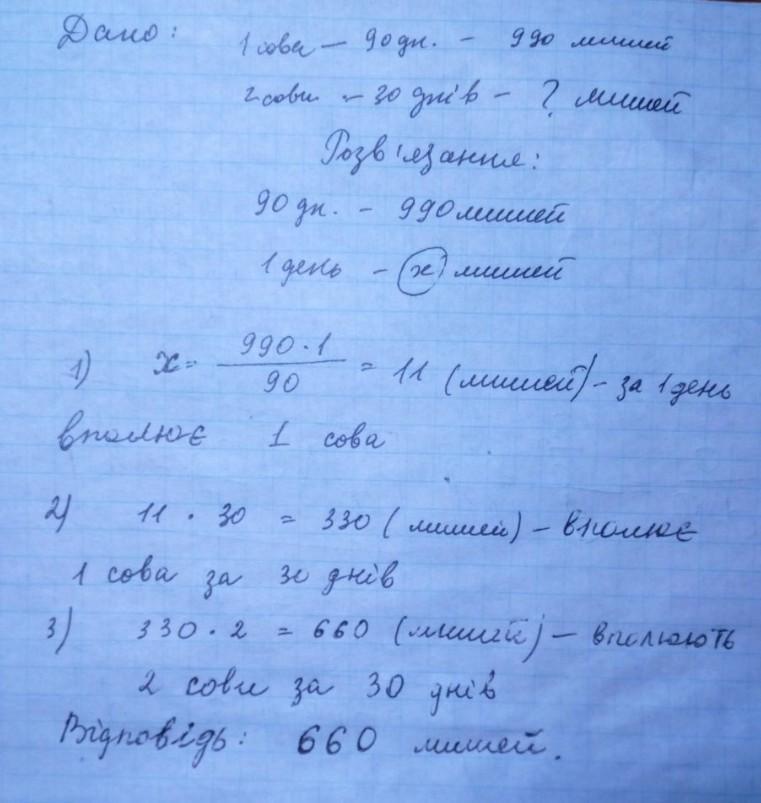 Дано: 1 сова – 90 дн. – 990 мишей
2 сови – 30 днів – ? мишей
Розв'язання:
90 дн. – 990 мишей
1 день – x мишей
1) x = 990 · 1 / 90 = 11 (мишей) – за 1 день
вполює 1 сова
2) 11 · 30 = 330 (мишей) – вполює
1 сова за 30 днів
3) 330 · 2 = 660 (мишей) – вполюють
2 сови за 30 днів
Відповідь: 660 мишей.